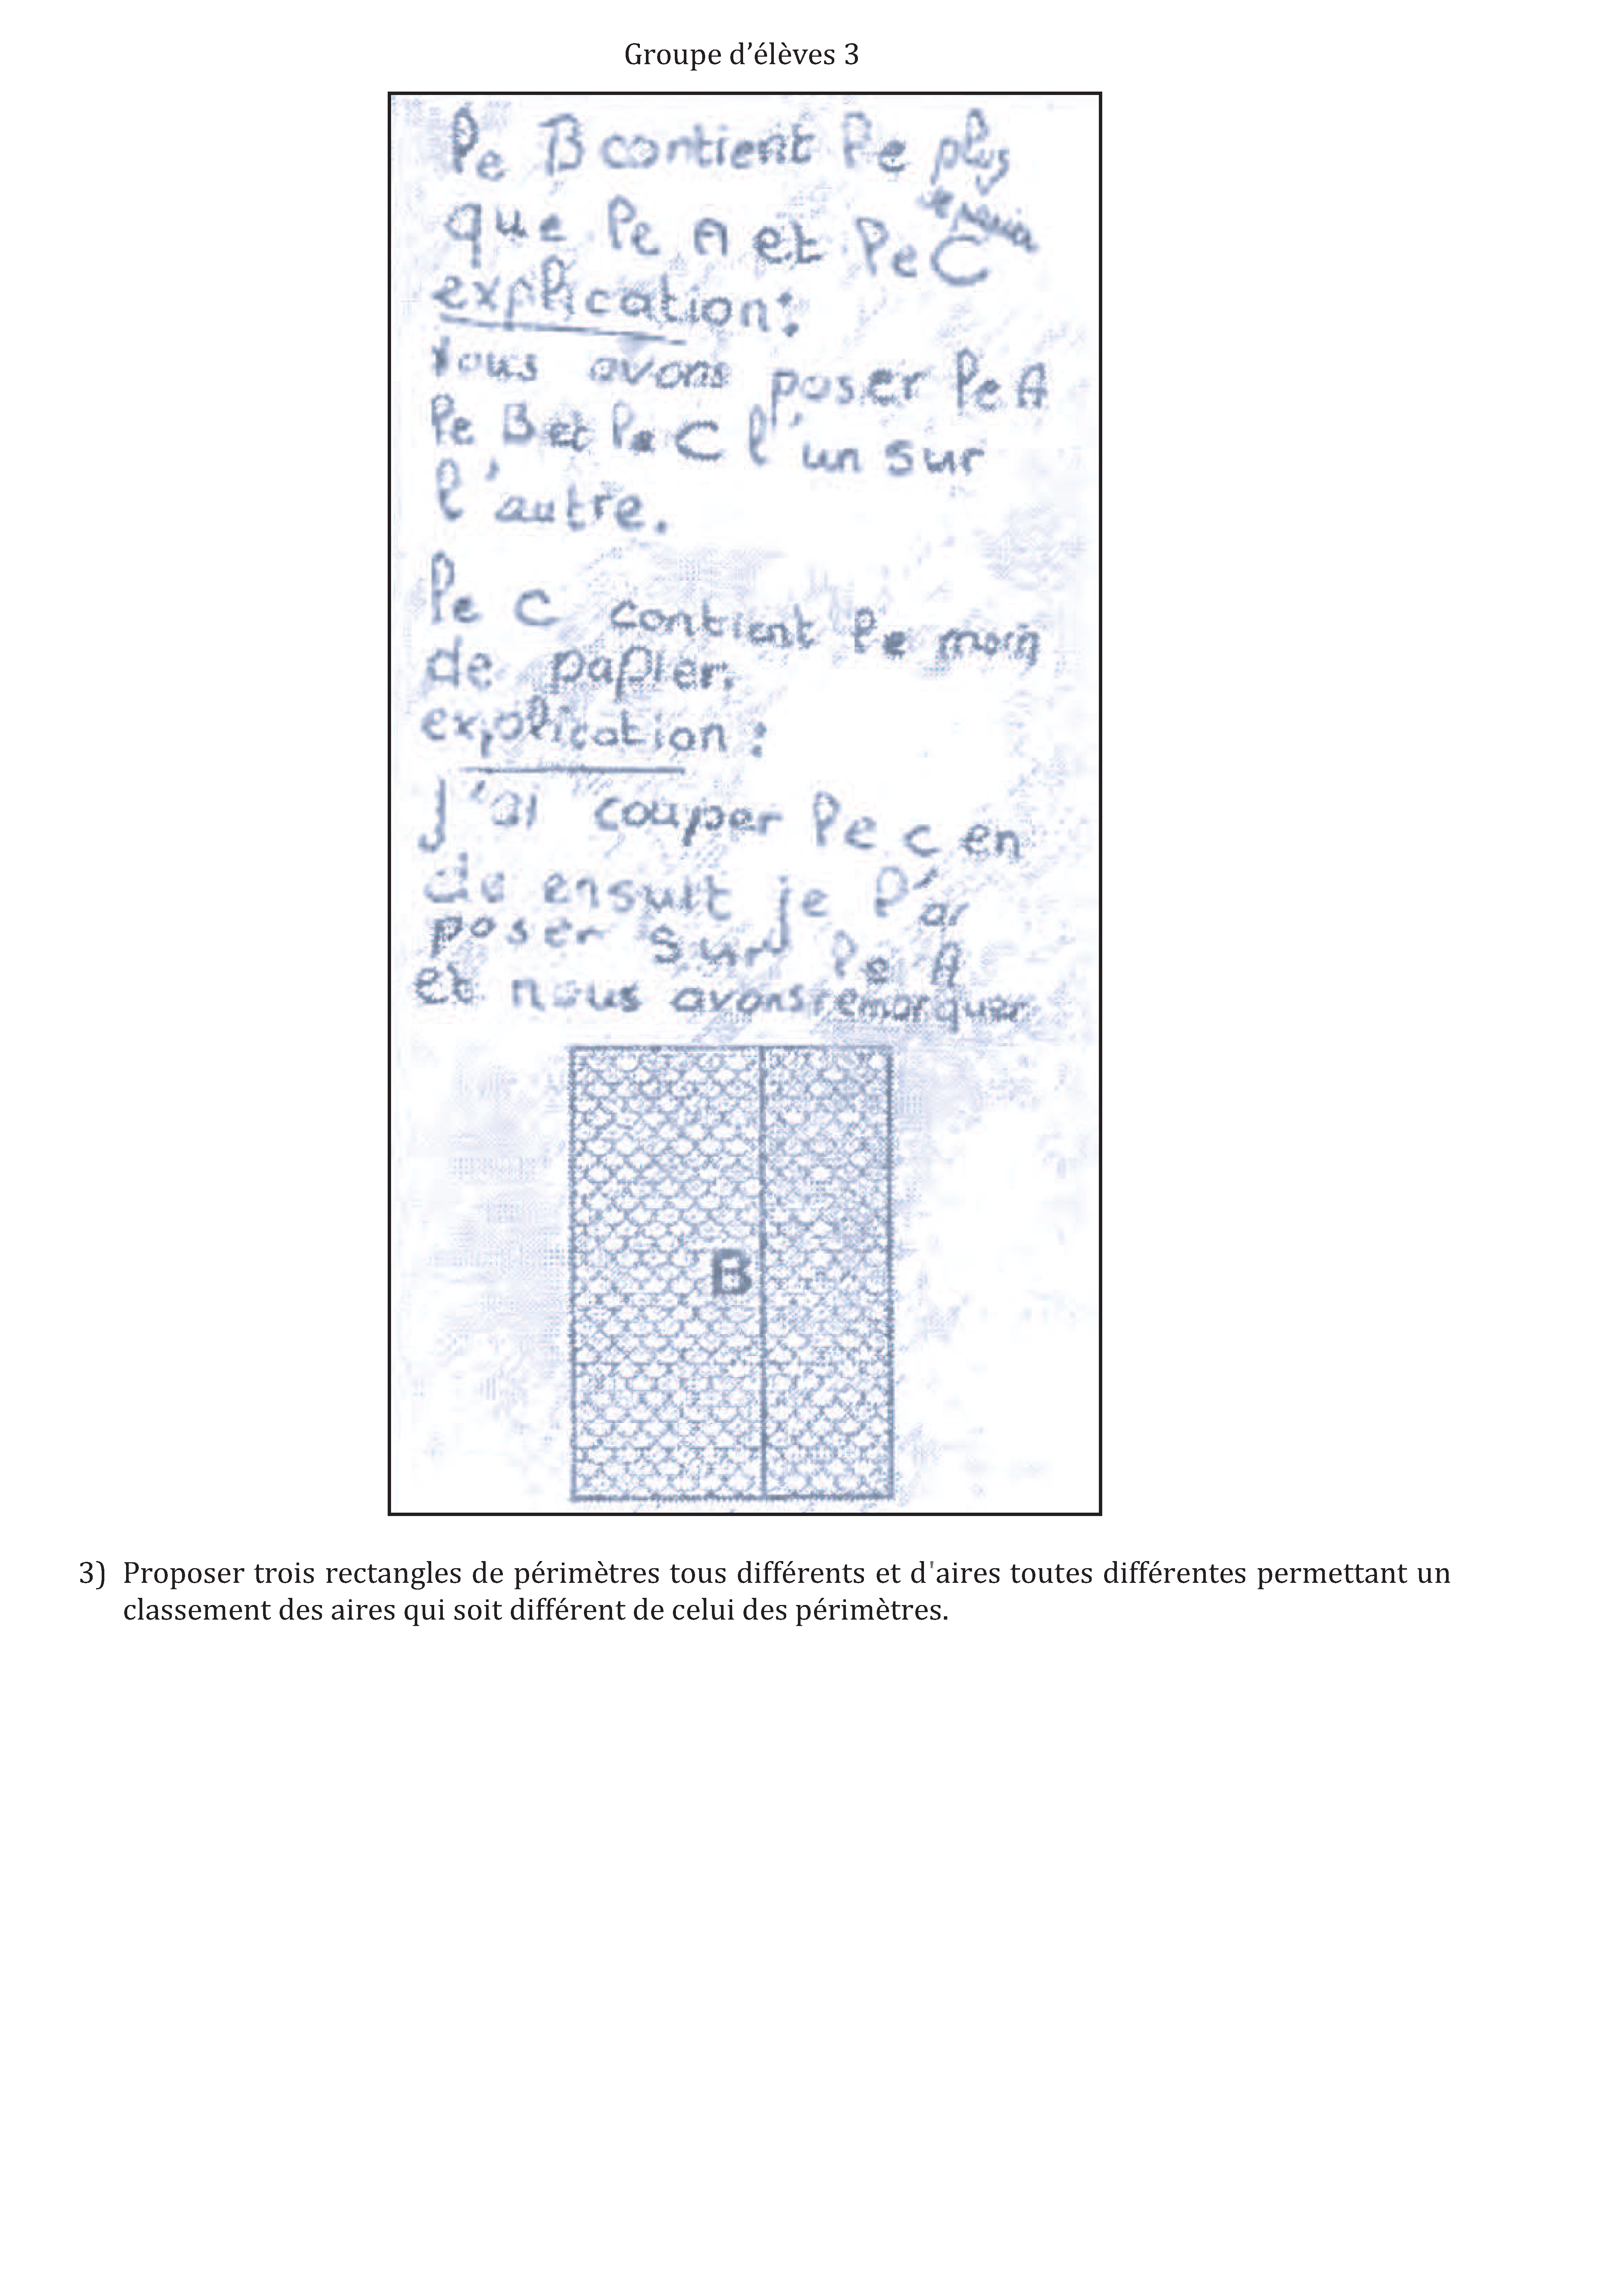 Groupe d’élèves 3
le B contient le plus
de papier
que le A et le C
explication :
nous avons poser le A
le B et le C l'un sur
l'autre.
le C contient le moin
de papier.
explication :
J'ai couper le C en
de ensuit je l'ai
poser sur le A
et nous avons remarquer
B
3) Proposer trois rectangles de périmètres tous différents et d'aires toutes différentes permettant un
classement des aires qui soit différent de celui des périmètres.